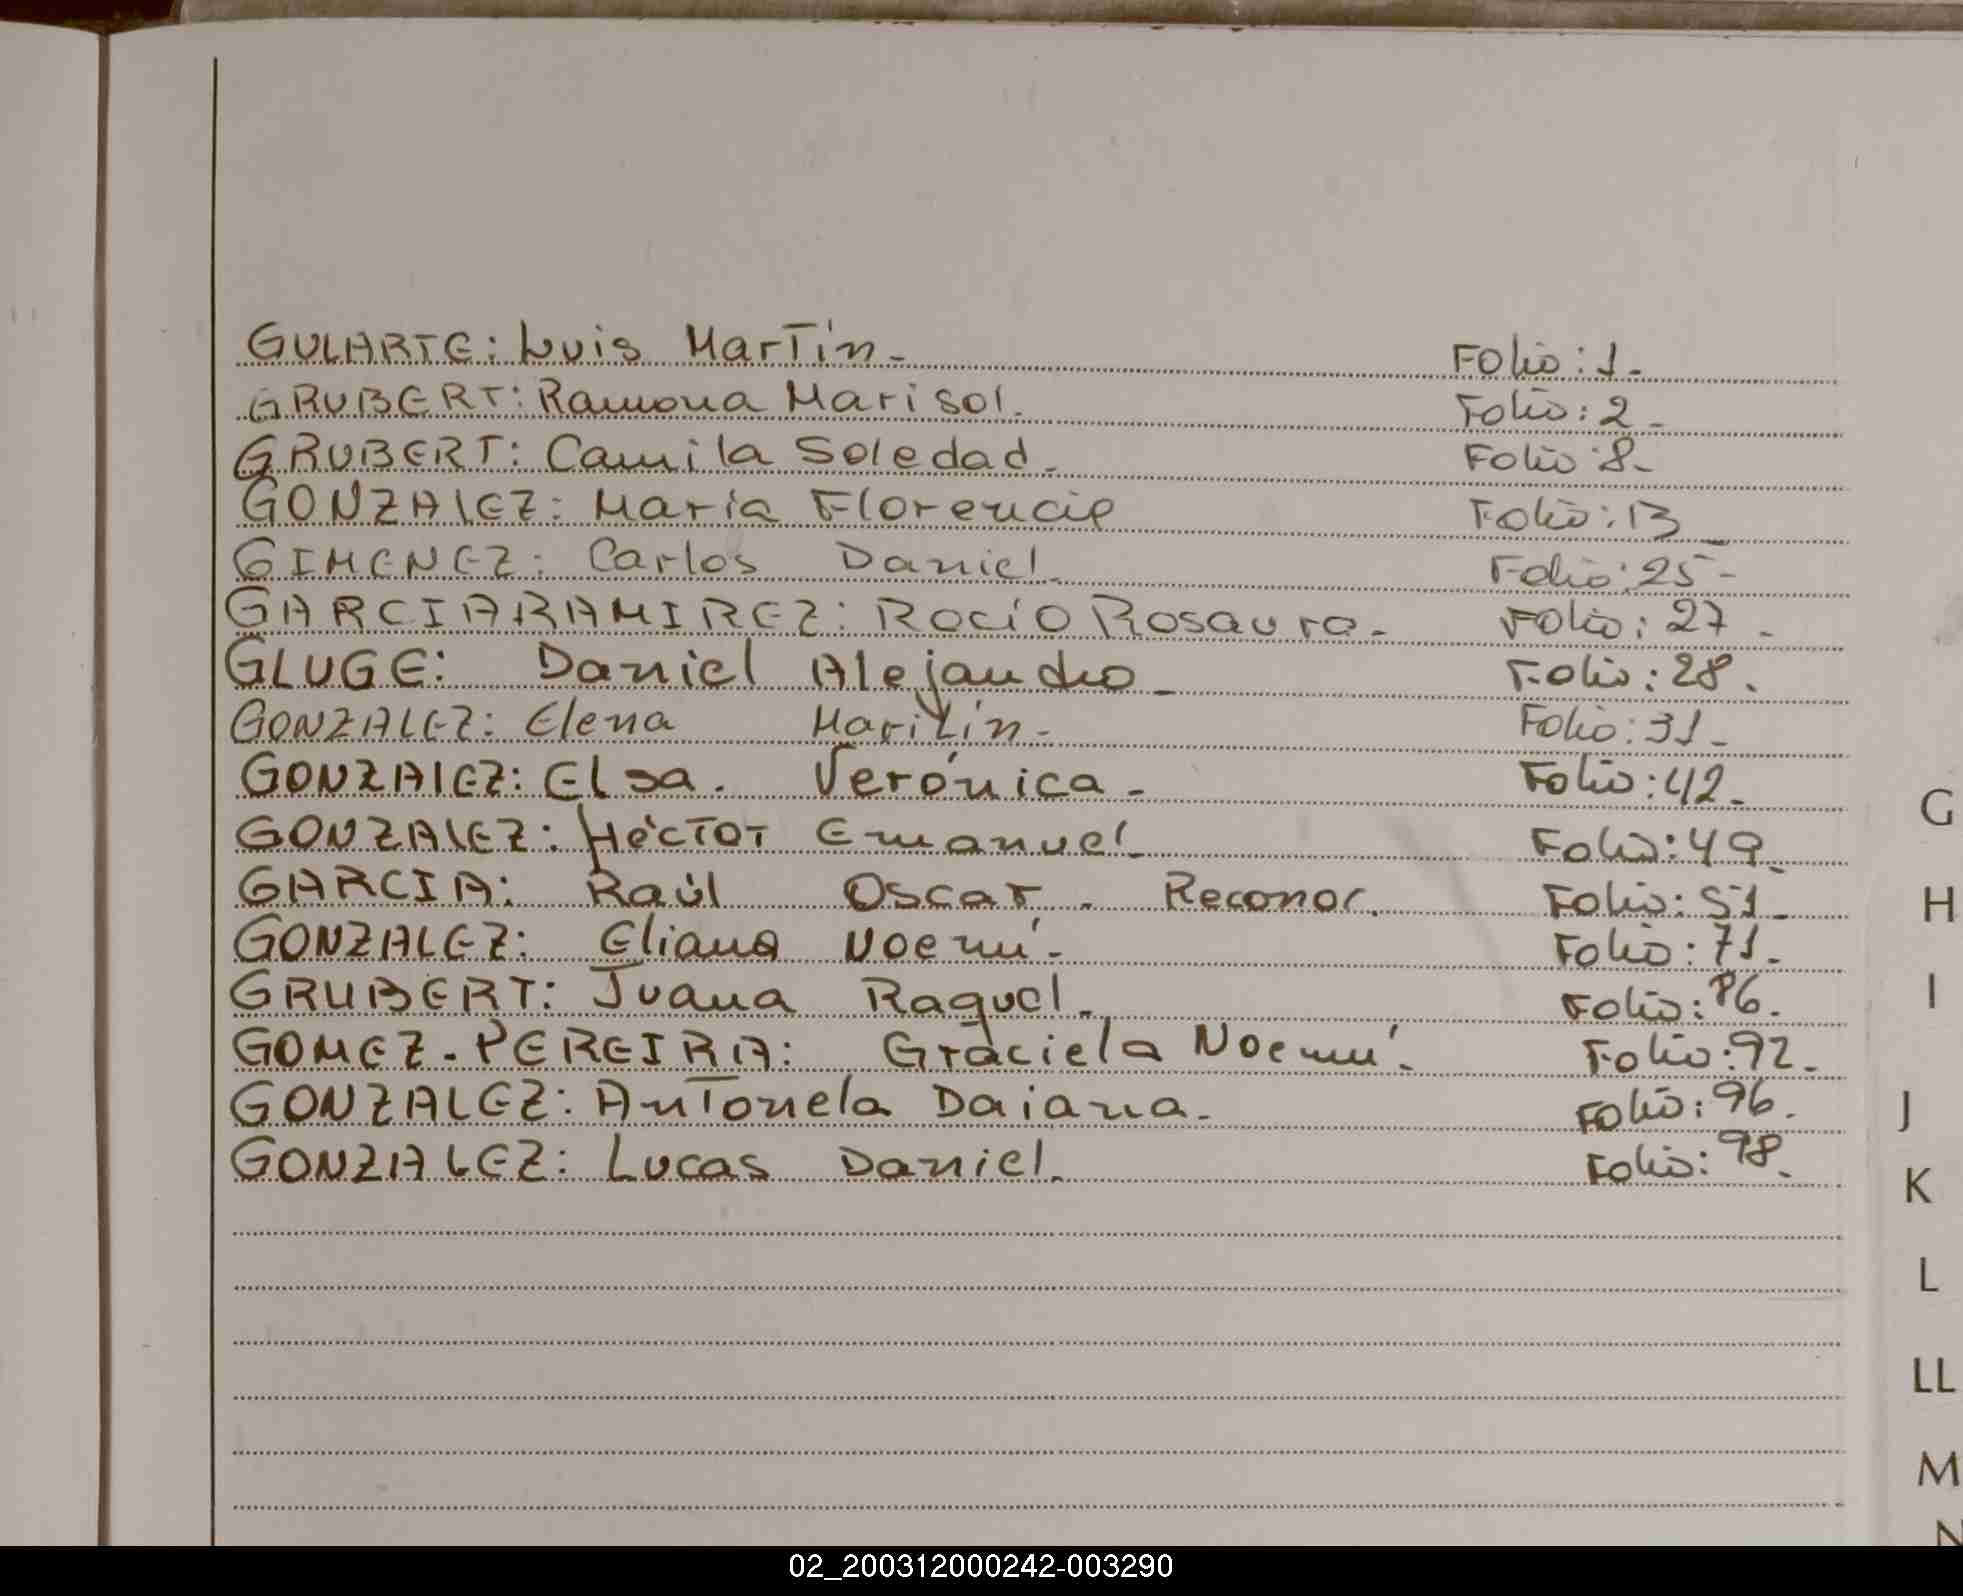 GULARTE: Luis Martín. Folio: 1.
GRUBERT: Ramona Marisol. Folio: 2.
GRUBERT: Camila Soledad. Folio: 8.
GONZALEZ: María Florencia Folio: 13
GIMENEZ: Carlos Daniel. Folio: 25-
GARCIA RAMIREZ: Rocío Rosaura. Folio: 27.
GLUGE: Daniel Alejandro. Folio: 28.
GONZALEZ: Elena Marilín. Folio: 31.
GONZALEZ: Elsa. Verónica. Folio: 42.
GONZALEZ: Héctor Emanuel. Folio: 49.
GARCIA: Raúl Oscar. Reconoc. Folio: 51.
GONZALEZ: Eliana Noemí. Folio: 71.
GRUBERT: Juana Raquel. Folio: 86.
GOMEZ-PEREIRA: Graciela Noemí. Folio: 92.
GONZALEZ: Antonela Daiana. Folio: 96.
GONZALEZ: Lucas Daniel. Folio: 98.
G
H
I
J
K
L
LL
M
N
02_200312000242-003290